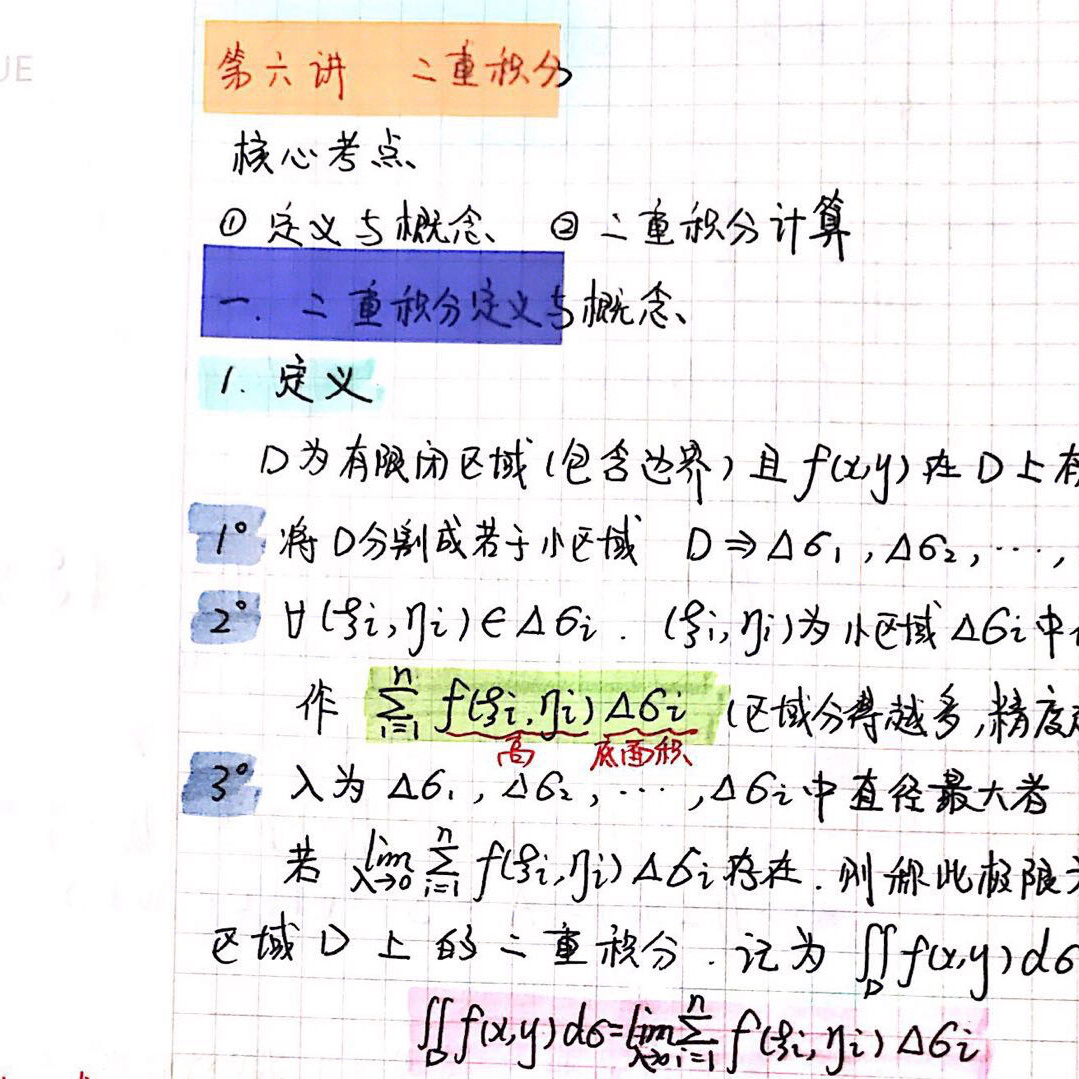 UE
第六讲 二重积分
核心考点
① 定义与概念 ② 二重积分计算
一. 二重积分定义与概念
1. 定义
D为有限闭区域(包含边界)且 f(x,y) 在 D 上有
1° 将D分割成若干小区域 D⇒Δσ₁,Δσ₂,⋯,
2° ∀(ξi,ηi)∈Δσi. (ξi,ηi)为小区域Δσi中
作 ∑ⁿᵢ₌₁ f(ξi,ηi)Δσi (区域分得越多,精度
高 底面积
3° λ为Δσ₁,Δσ₂,⋯,Δσi中直径最大者
若 lim λ→0 ∑ⁿᵢ₌₁ f(ξi,ηi)Δσi存在. 则称此极限
区域D上的二重积分. 记为 ∬D f(x,y)dσ
∬D f(x,y)dσ=lim λ→0 ∑ⁿᵢ₌₁ f(ξi,ηi)Δσi